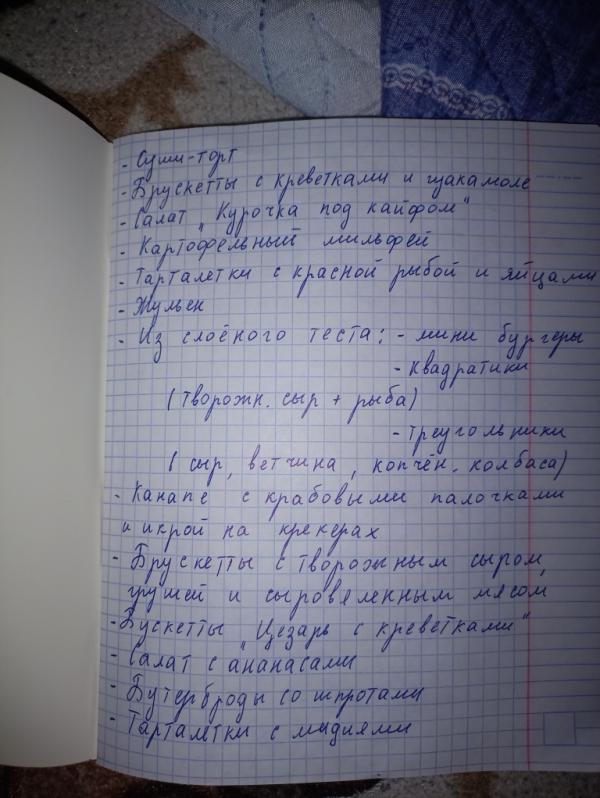 - Суши-торт
- Брускетты с креветками и гуакамоле
- Салат „Курочка под кайфом"
- Картофельный мильфей
- Тарталетки с красной рыбой и яйцами
- Жульен
- Из слоёного теста: - мини бургеры
- квадратики
(творожн. сыр + рыба)
- треугольники
(сыр, ветчина, копчён. колбаса)
- Канапе с крабовыми палочками
и икрой на крекерах
- Брускетты с творожным сыром,
грушей и сыровяленным мясом
- Бускетты „Цезарь с креветками"
- Салат с ананасами
- Бутерброды со шпротами
- Тарталетки с мидиями